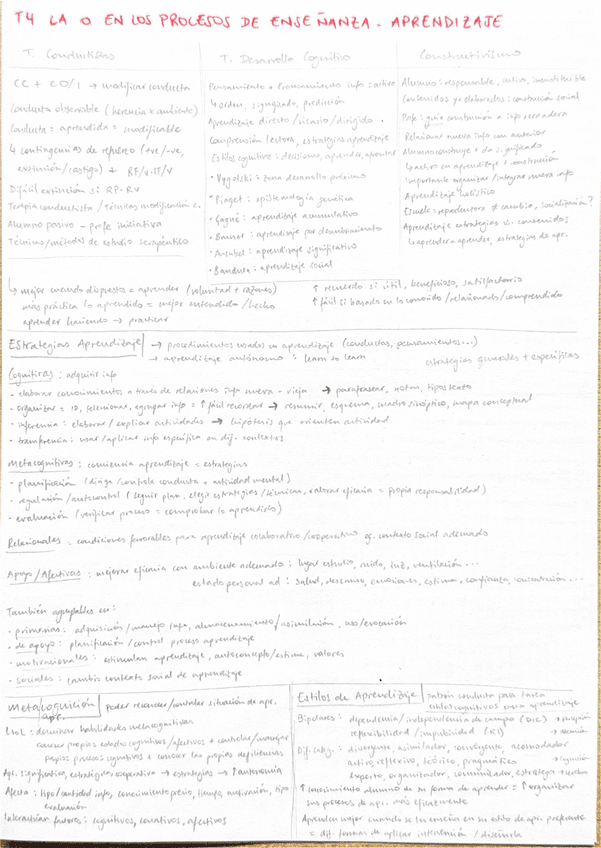 T4 LA O EN LOS PROCESOS DE ENSEÑANZA - APRENDIZAJE
T. Conductistas
CC + CO/I → modificar conducta
Conducta observable (herencia x ambiente)
Conducta = aprendida = modificable
4 contingencias de refuerzo (+ve/-ve,
extinción/castigo) + RF/V-IF/V
Difícil extinción si RF-RV
Terapia conductista / Técnicas modificación c.
Alumno pasivo - profe iniciativa
Técnicas/métodos de estudio
T. Desarrollo Cognitivo
Pensamiento + Procesamiento info = activo
↳ orden, significado, predicción
Aprendizaje directo / vicario / dirigido.
Comprensión lectora, estrategias aprendizaje
Estilos cognitivos: decisiones, aprender, afrontar
• Vygotski: zona desarrollo próximo
• Piaget: epistemología genética
• Gagné: aprendizaje acumulativo
• Bruner: aprendizaje por descubrimiento
• Ausubel: aprendizaje significativo
• Bandura: aprendizaje social
Constructivismo
Alumno: responsable, activo, insustituible
Contenidos ya elaborados: construcción social
Profe: guía construcción a info verdadera
Relacionar nueva info con anterior
Alumno construye + da significado
↳ activo en aprendizaje + construcción
importante organizar/integrar nueva info
Aprendizaje holístico
Escuela: reproductora ≠ cambio, socialización?
Aprendizaje estrategias vs. contenidos:
↳ aprender a aprender, estrategias de apr.
↳ mejor cuando dispuesto a aprender (voluntad + razones)
más práctica lo aprendido = mejor entendido/hecho
aprender haciendo → practicar
↑ recuerdo si útil, beneficioso, satisfactorio
↑ fácil si basado en lo conocido / relacionado / comprendido
Estrategias Aprendizaje → procedimientos usados en aprendizaje (conductas, pensamientos...)
→ aprendizaje autónomo: learn to learn
estrategias generales + específicas
Cognitivas: adquirir info
• elaborar conocimientos a través de relaciones info nueva - vieja → parafrasear, notas, tipos texto
• organizar = ID, seleccionar, agrupar info = ↑ fácil recordar → resumir, esquema, cuadro sinóptico, mapa conceptual
• inferencia: elaborar / explicar actividades → hipótesis que orienten actividad
• transferencia: usar/aplicar info específica en dif. contextos
Metacognitivas: conciencia aprendizaje = estrategias
• planificación (dirige/controla conducta + actividad mental)
• regulación/autocontrol (seguir plan, elegir estrategias/técnicas, valorar eficacia = propia responsabilidad)
• evaluación (verificar proceso = comprobar lo aprendido)
Relacionales = condiciones favorables para aprendizaje colaborativo/cooperativo eg. contexto social adecuado
Apoyo/Afectivas: mejorar eficacia con ambiente adecuado: lugar estudio, ruido, luz, ventilación...
estado personal ad: salud, descanso, emociones, estima, confianza, concentración...
También agrupables en:
• primarias: adquisición/manejo info, almacenamiento/asimilación, uso/evocación
• de apoyo: planificación/control proceso aprendizaje
• motivacionales: estimulan aprendizaje, autoconcepto/estima, valores
• sociales: cambio contexto social de aprendizaje
Metacognición apr. | Poder reconocer/controlar situación de apr.
LtoL: dominar habilidades metacognitivas
conocer propios estados cognitivos/afectivos + controlar/manejar
propios procesos cognitivos + conocer las propias deficiencias
Apr. significativo, estrategias, cooperativo → estrategias → ↑ autonomía
Afecta: tipo/cantidad info, conocimiento previo, tiempo, motivación, tipo
evaluación
Interactúan factores: cognitivos, conativos, afectivos
Estilos de Aprendizaje | patrón conducta para tarea
estilos cognitivos para aprendizaje
Bipolares: dependencia/independencia de campo (DIC) → percepción
reflexividad / impulsividad (RI) →
Dif. categ.: divergente, asimilador, convergente, acomodador
activo, reflexivo, teórico, pragmático → cognición
experto, organizador, comunicador, estratega →
↑ conocimiento alumno de su forma de aprender = ↑ organizar
sus procesos de apr. más eficazmente
Aprenden mejor cuando se les enseña en su estilo de apr. preferente
= dif. formas de aplicar intervención / discurso